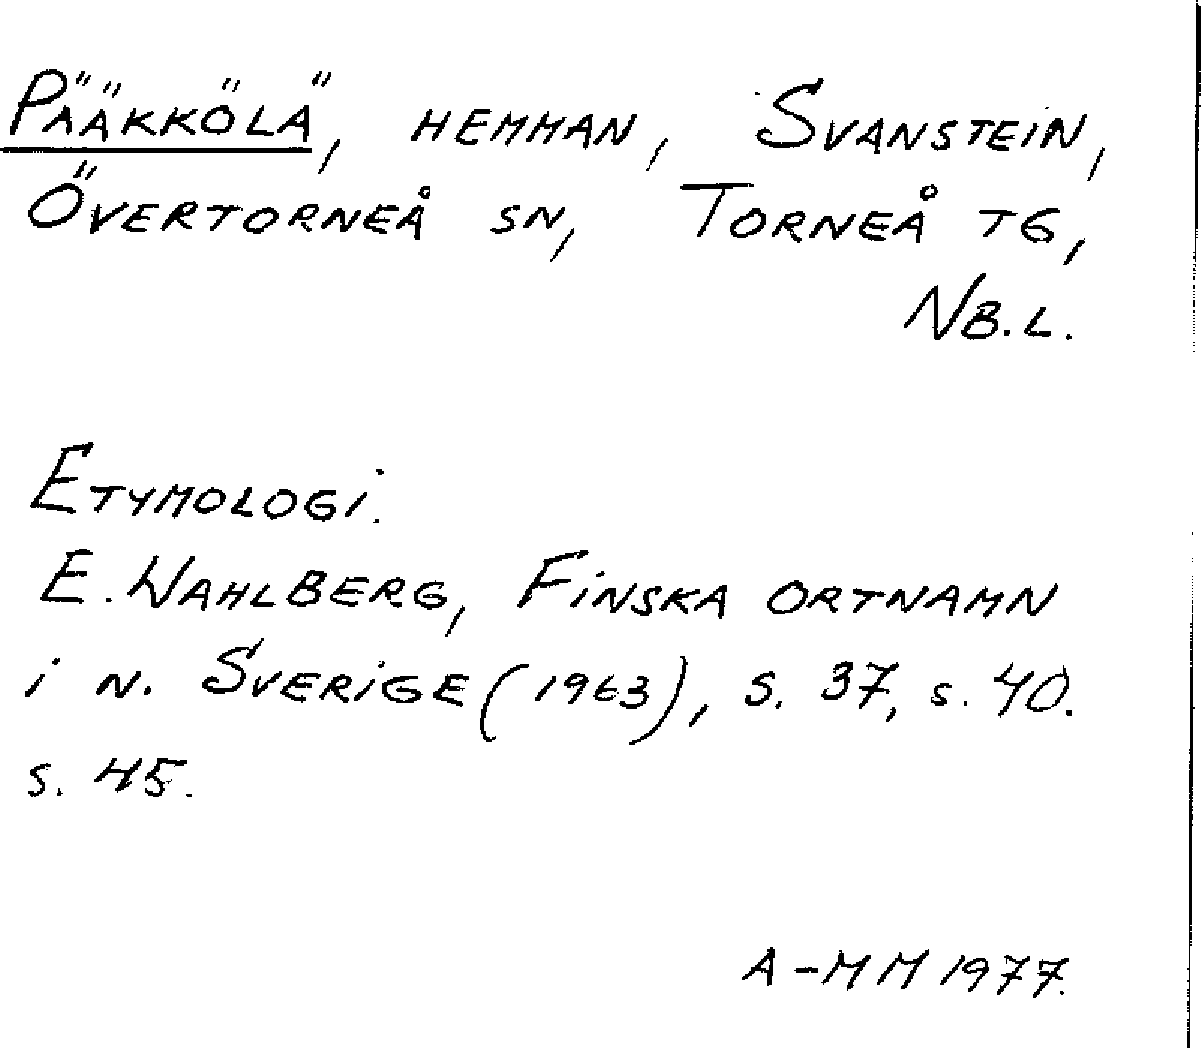 Pääkkölä, hemman, Svanstein,
Övertorneå sn, Torneå tg,
Nb.l.
Etymologi.
E. Wahlberg, Finska ortnamn
i n. Sverige (1963), s. 37, s. 40.
s. 45.
A-MM 1977.